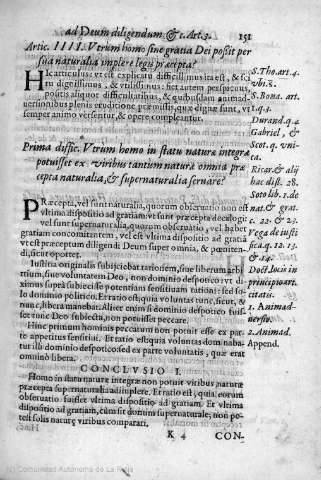 ad Deum diligendum &c. Art. 3. 151
Artic. IIII. Vtrum homo sine gratia Dei possit per
sua naturalia implere legis præcepta?
Hic articulus: vt est explicatu difficilimus ita est, & sci
tu dignissimus, & vtilissimus: fiet autem perspicuus,
positis aliquot difficultatibus, & quibusdam animad-
uersionibus plenis eruditione præmissis, quæ dignæ sunt, vt
semper animo versentur, & opere compleantur.
S. Tho. art. 4.
vbi s.
S. Bona. art.
1. q. 3.
Durand. q. 4
Gabriel, &
Scot. q. vni-
ca.
Prima diffic. Vtrum homo in statu naturæ integræ
potuisset ex viribus tantum naturæ omnia præ
cepta naturalia, & supernaturalia seruare?
Ricar. & alij
hac dist. 28.
Soto lib. 1. de
nat. & grat.
c. 22. & 23.
Vega de iusti
fica. q. 12. 13.
& 14.
Doct. locis in
principio art.
citatis.
1. Animad-
uersio.
2. Animad.
Append.
Præcepta, vel sunt naturalia, quorum obseruatio non est
vltima dispositio ad gratiam: vt sunt præcepta decalogi
vel sunt supernaturalia, quorum obseruatio, vel habet
gratiam concomitantem, vel est vltima dispositio ad gratiã
vt est præceptum diligendi Deum super omnia, & pœniten-
di, sicut oportet.
Iustitia originalis subijciebat rationem, siue liberum arbi
trium, siue voluntatem Deo, non dominio despotico: vt di-
ximus supra subiecisse potentiam sensitiuam rationi: sed so-
lo dominio politico. Et ratio est; quia voluntas tunc, sicut, &
nunc, libera manebat. Aliter enim si dominio despotico fuis-
set tunc Deo subiecta, non potuisset peccare.
Hinc primum hominis peccatum non potuit esse ex par-
te appetitus sensitiui. Et ratio est; quia voluntas domnaba-
tur illi dominio despotico: sed ex parte voluntatis, quæ erat
omnino libera.
CONCLVSIO I.
Homo in statu naturæ integræ non potuit viribus naturæ
præcepta supernaturalia adimplere. Et ratio est; quia, eorum
obseruatio fuisset vltima dispositio ad gratiam: Et vltima
dispositio ad gratiam, cùm sit donum supernaturale, non po-
test solis naturæ viribus comparari.
K 4 CON-
(c) Comunidad Autónoma de La Rioja